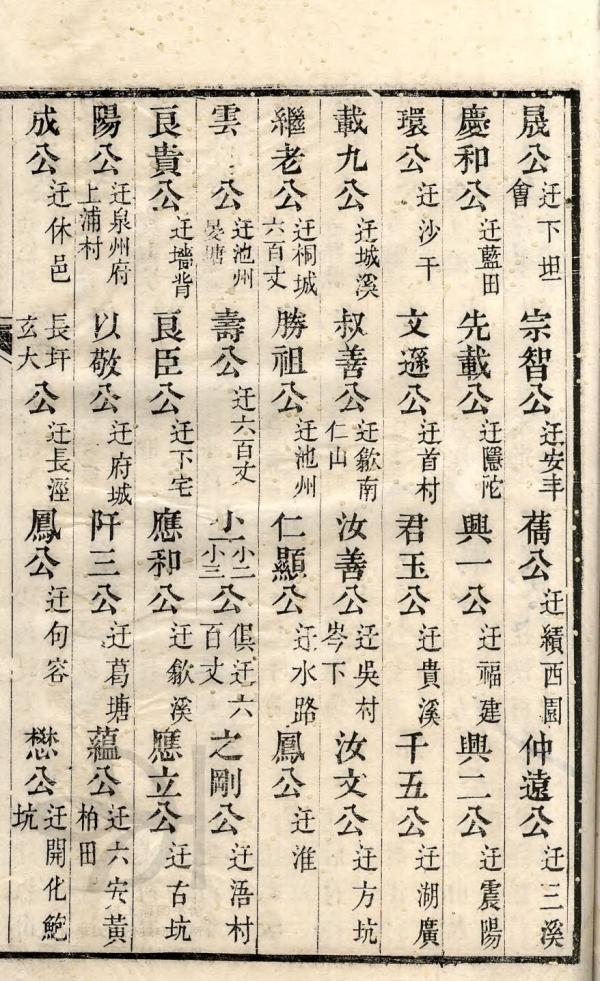 晟公 迁下坦會 宗智公 迁安丰 舊公 迁績西園 仲遠公 迁三溪
慶和公 迁藍田 先載公 迁隱陀 興一公 迁福建 興二公 迁震陽
環公 迁沙干 文遜公 迁首村 君玉公 迁貴溪 千五公 迁湖廣
載九公 迁城溪 叔善公 迁歙南仁山 汝善公 迁吳村岑下 汝文公 迁方坑
繼老公 迁桐城六百丈 勝祖公 迁池州 仁顯公 迁水路 鳳公 迁淮
雲公 迁池州晏塘 壽公 迁六百丈 小一小二小三公 俱迁六百丈 之剛公 迁浯村
良貴公 迁墻背 良臣公 迁下宅 應和公 迁歙溪 應立公 迁古坑
陽公 迁泉州府上浦村 以敬公 迁府城 阡三公 迁葛塘 蘊公 迁六安黄柏田
成公 迁休邑 長玗玄大公 迁長涇 鳳公 迁句容 懋公 迁開化鮑坑